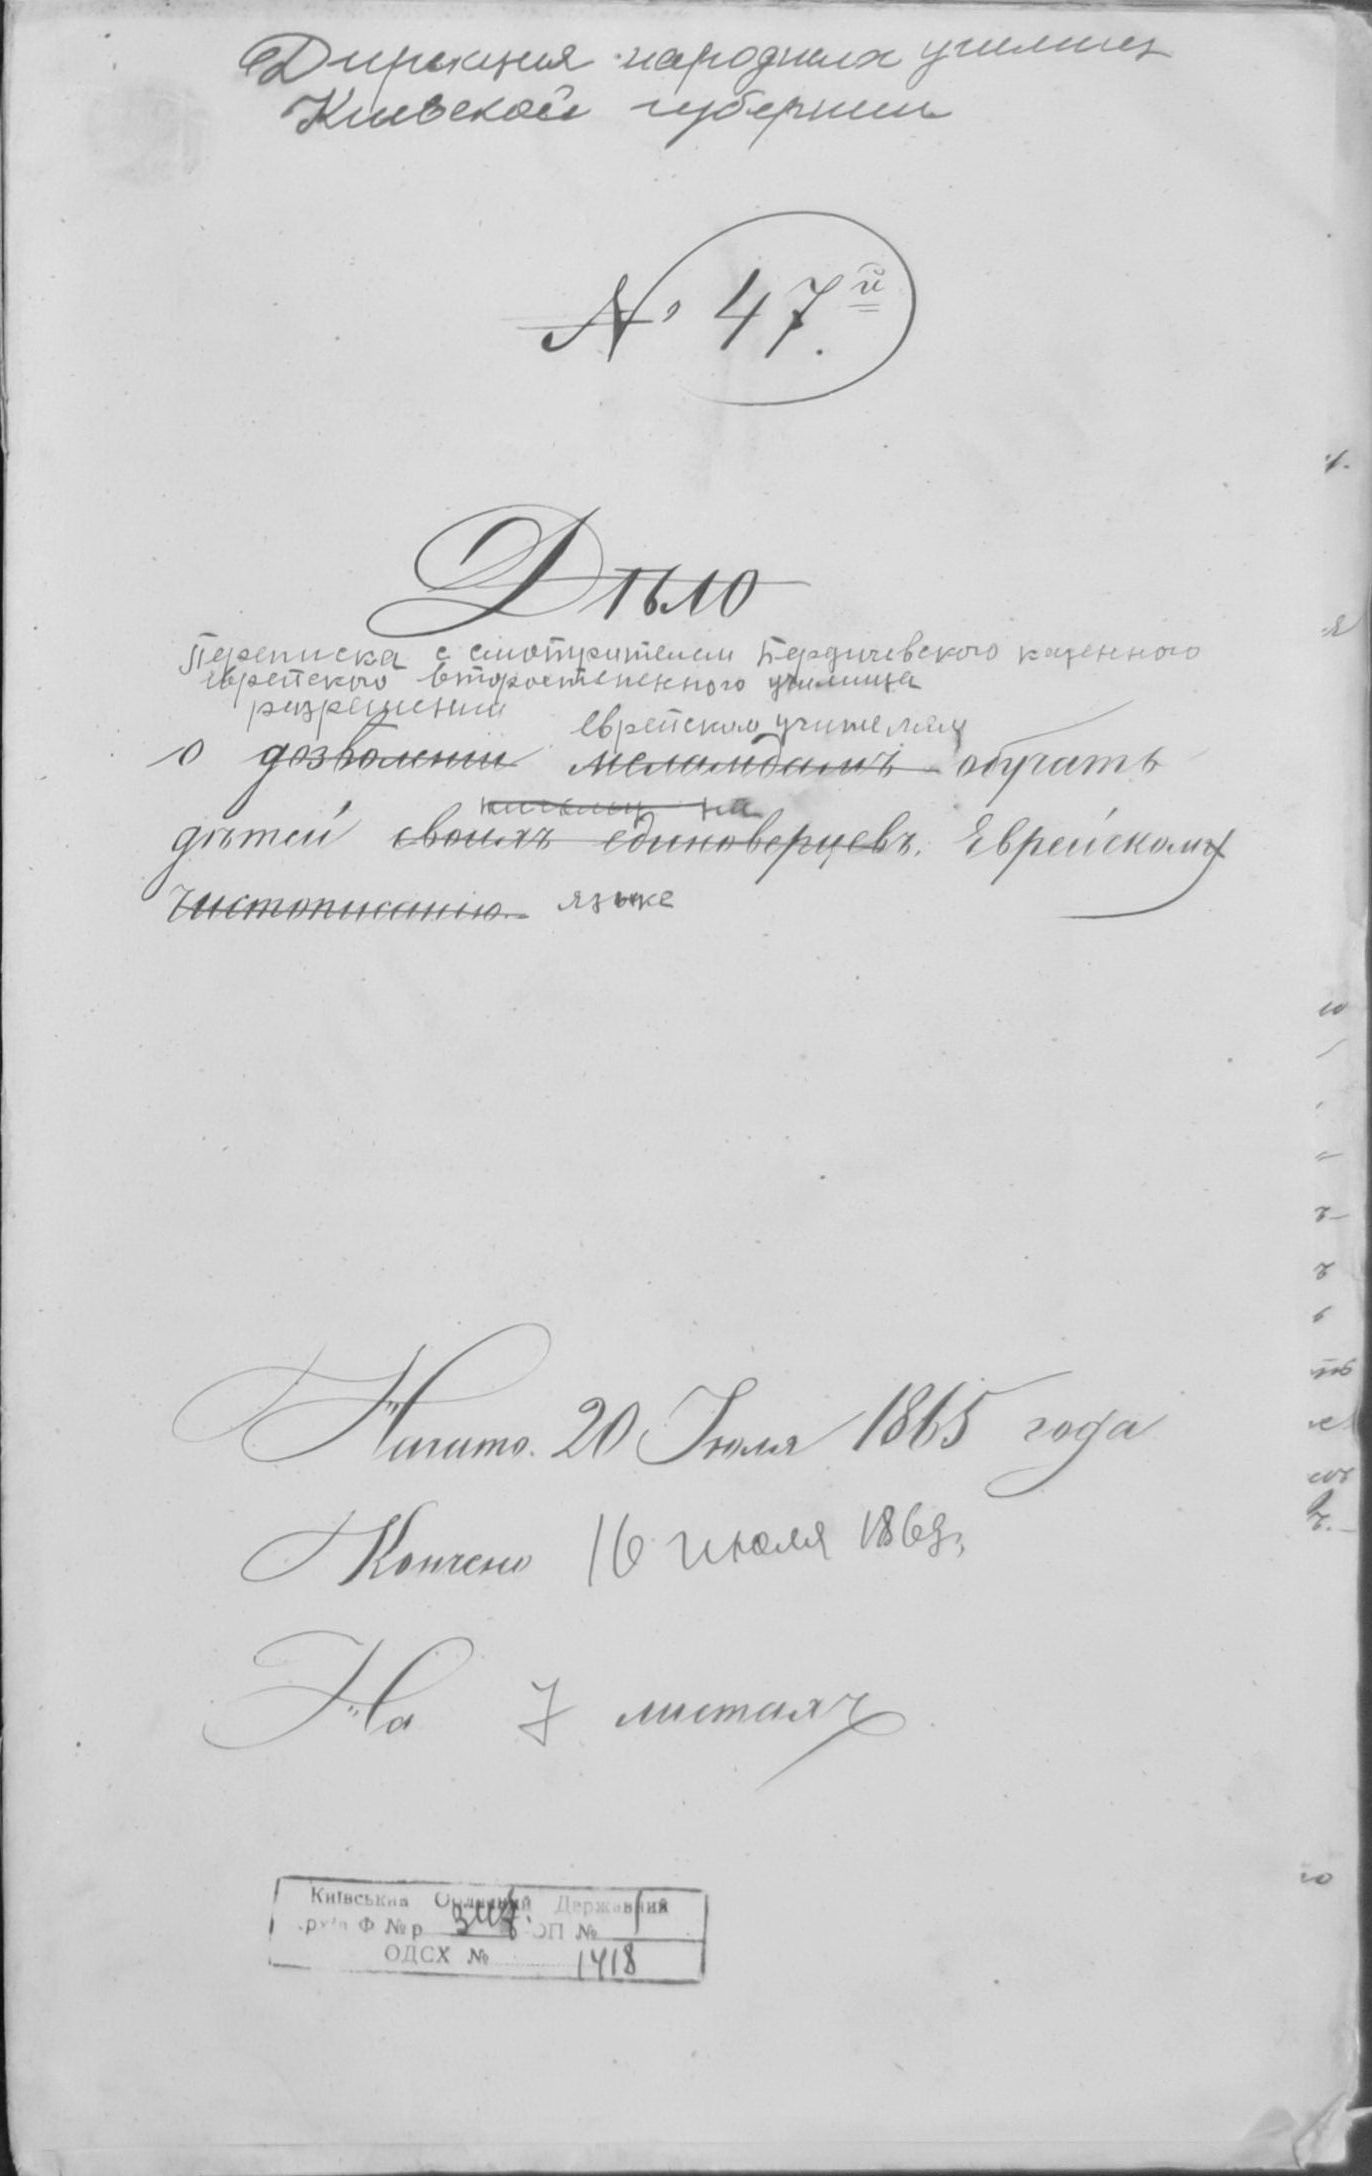 Дирекция народных училищ
Киевской губернии
№ 47й
Дѣло
Переписка с смотрителем Бердичевского казенного
еврейского второстепенного училища
разрешении еврейским учителям
о дозволении меламдамъ обучать
на
дѣтей своихъ единоверцевъ Еврейскому
Чистописанию языке
Начато 20 Июля 1865 года
Кончено 16 июля 1869г.
На 7 листахъ
Київський Обласний Державний
Архів Ф № р ОП № 1
ОДСХ № 1418